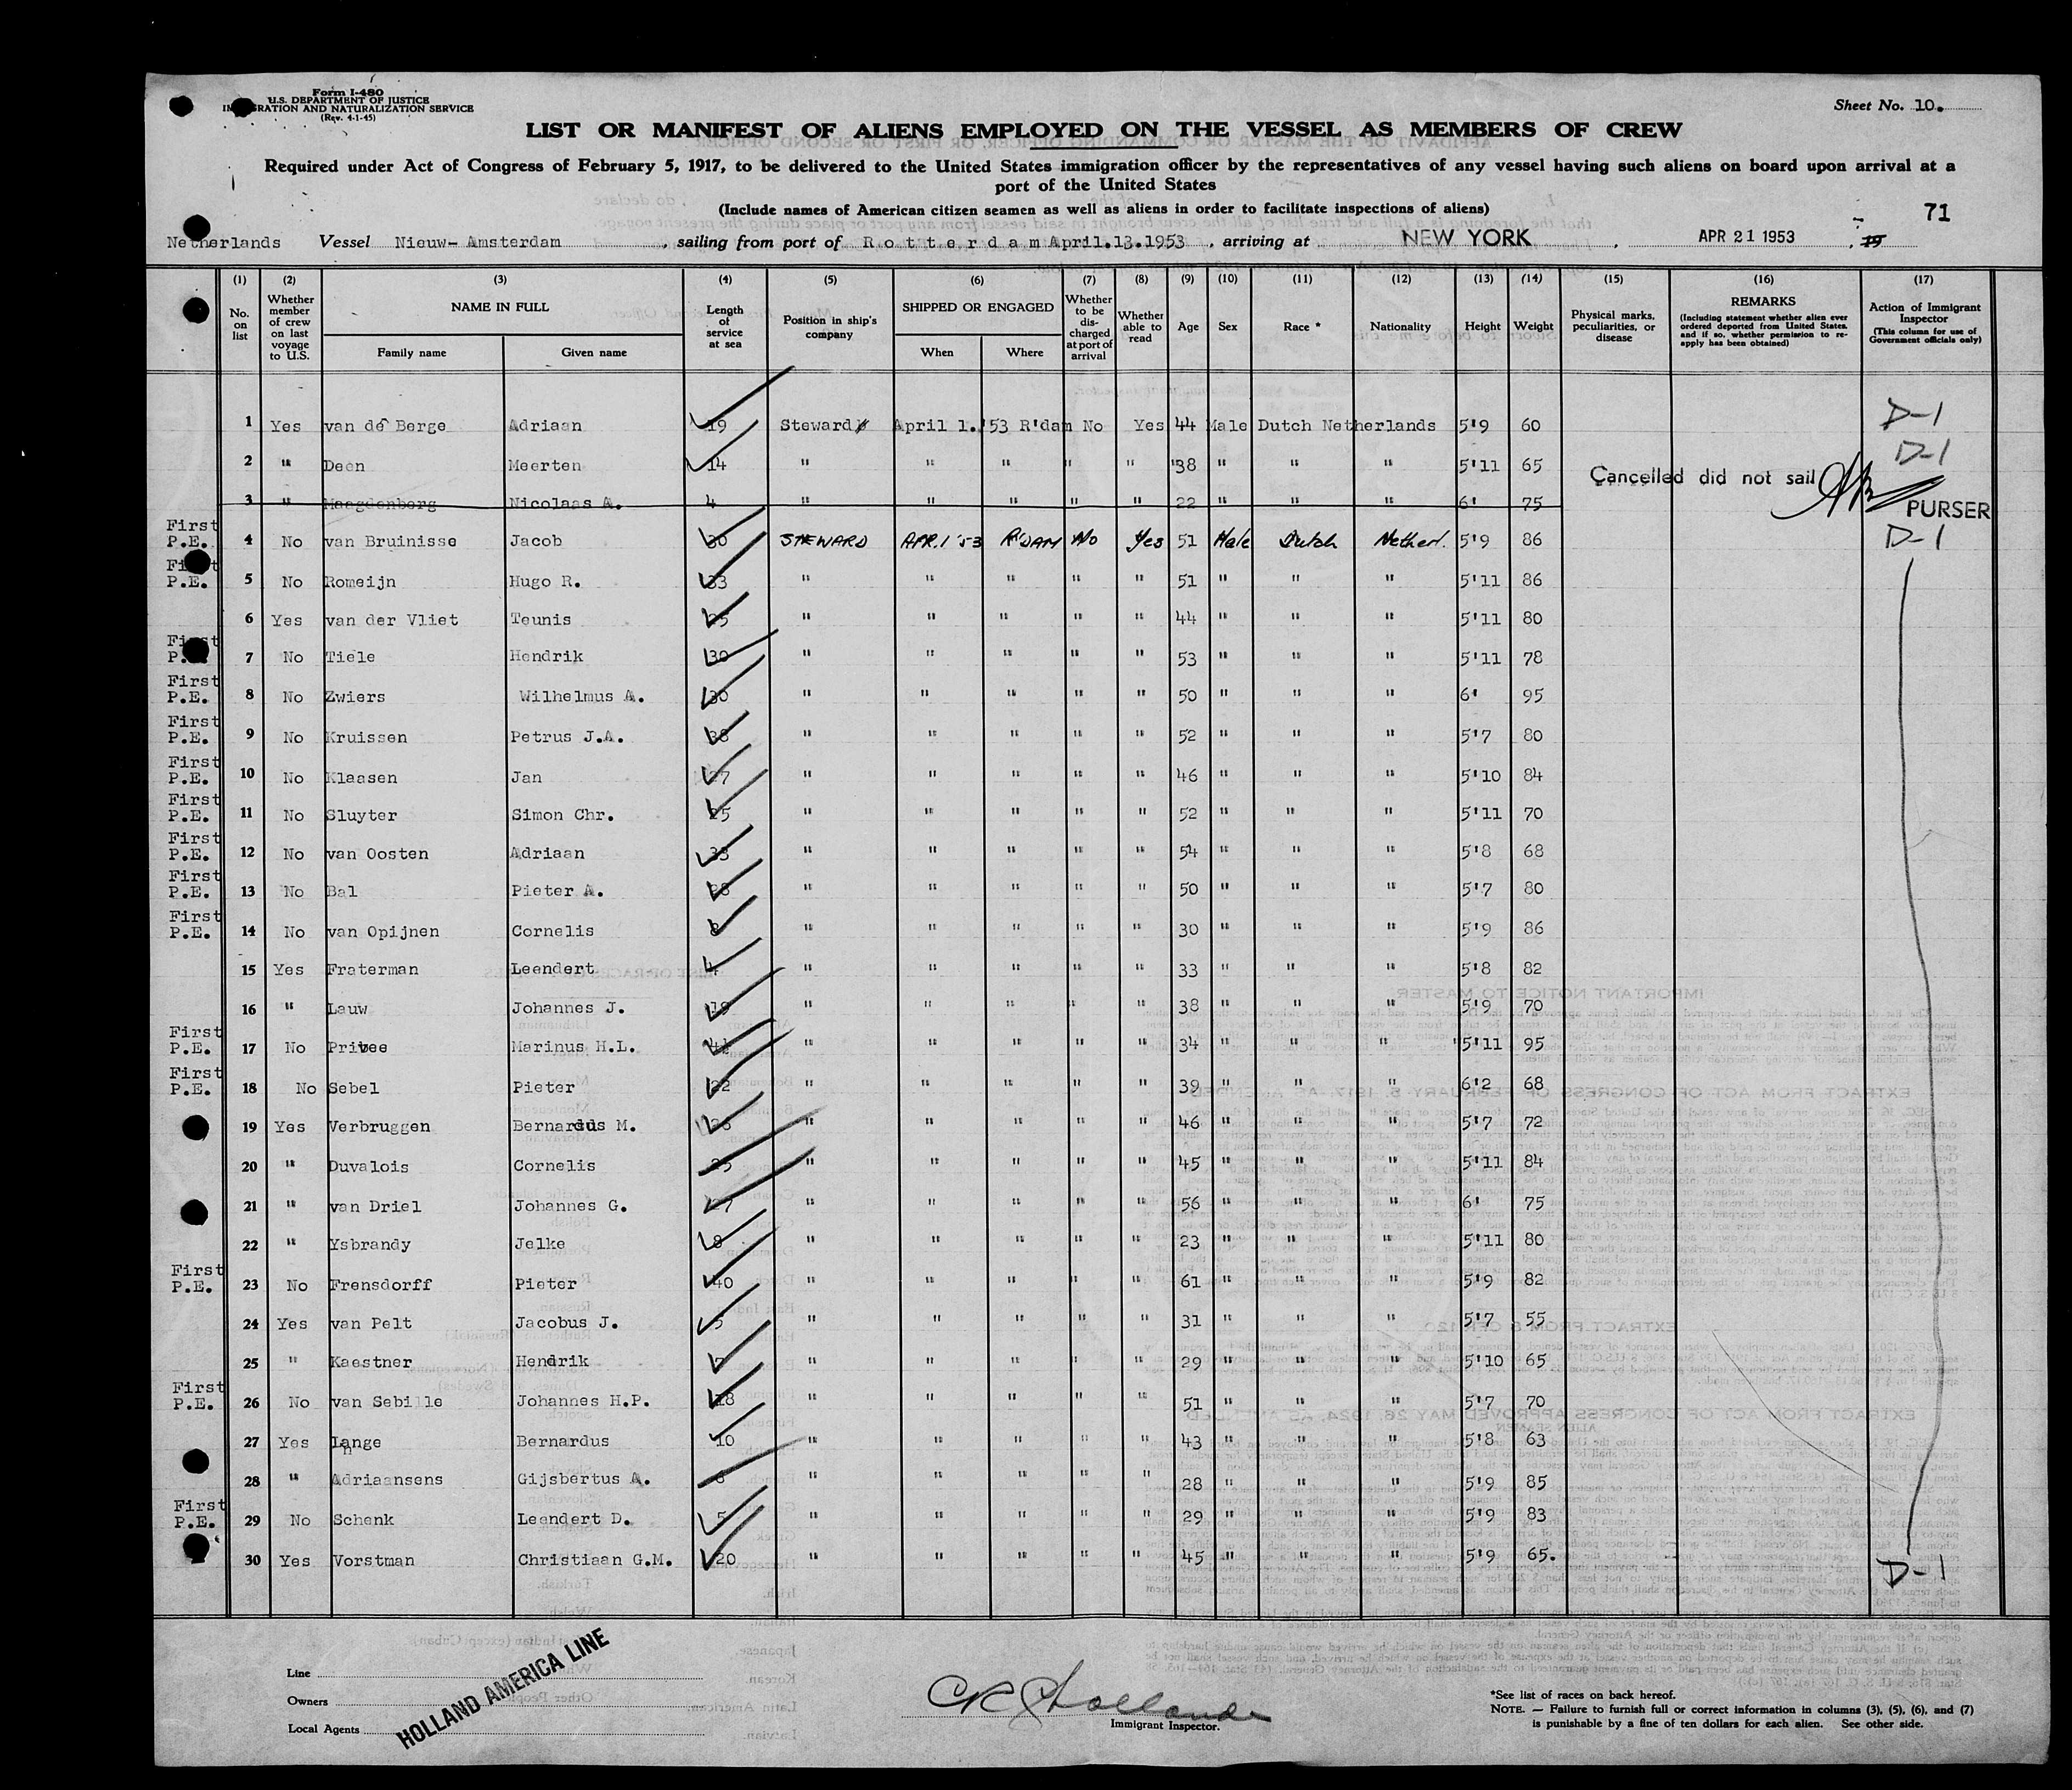 Form I-480
U.S. DEPARTMENT OF JUSTICE
IMMIGRATION AND NATURALIZATION SERVICE
(Rev. 4-1-45)
Sheet No. 10.
LIST OR MANIFEST OF ALIENS EMPLOYED ON THE VESSEL AS MEMBERS OF CREW
Required under Act of Congress of February 5, 1917, to be delivered to the United States immigration officer by the representatives of any vessel having such aliens on board upon arrival at a
port of the United States
(Include names of American citizen seamen as well as aliens in order to facilitate inspections of aliens)
71
Netherlands Vessel Nieuw-Amsterdam, sailing from port of Rotterdam April.13.1953, arriving at NEW YORK, APR 21 1953, 19
(1) (2) (3) (4) (5) (6) (7) (8) (9) (10) (11) (12) (13) (14) (15) (16) (17)
No. on list
Whether member of crew on last voyage to U.S.
NAME IN FULL
Family name Given name
Length of service at sea
Position in ship's company
SHIPPED OR ENGAGED
When Where
Whether to be discharged at port of arrival
Whether able to read
Age
Sex
Race *
Nationality
Height
Weight
Physical marks, peculiarities, or disease
REMARKS
(Including statement whether alien ever ordered deported from United States, and if so, whether permission to reapply has been obtained)
Action of Immigrant Inspector
(This column for use of Government officials only)
1 Yes van de Berge Adriaan 19 Steward April 1.'53 R'dam No Yes 44 Male Dutch Netherlands 5'9 60 D-1
2 " Deen Meerten 14 " " " " " 38 " " " 5'11 65 D-1
3 " Maagdenberg Nicolaas A. 4 " " " " " 22 " " " 6' 75 Cancelled did not sail PURSER
First P.E. 4 No van Bruinisse Jacob 30 STEWARD APR.1'53 R'DAM No Yes 51 Male Dutch Netherl. 5'9 86 D-1
First P.E. 5 No Romeijn Hugo R. 33 " " " " " 51 " " " 5'11 86
6 Yes van der Vliet Teunis 25 " " " " " 44 " " " 5'11 80
First P.E. 7 No Tiele Hendrik 30 " " " " " 53 " " " 5'11 78
First P.E. 8 No Zwiers Wilhelmus A. 30 " " " " " 50 " " " 6' 95
First P.E. 9 No Kruissen Petrus J.A. 38 " " " " " 52 " " " 5'7 80
First P.E. 10 No Klaasen Jan 27 " " " " " 46 " " " 5'10 84
First P.E. 11 No Sluyter Simon Chr. 25 " " " " " 52 " " " 5'11 70
First P.E. 12 No van Oosten Adriaan 33 " " " " " 54 " " " 5'8 68
First P.E. 13 No Bal Pieter A. 28 " " " " " 50 " " " 5'7 80
First P.E. 14 No van Opijnen Cornelis 8 " " " " " 30 " " " 5'9 86
15 Yes Fraterman Leendert 4 " " " " " 33 " " " 5'8 82
16 " Lauw Johannes J. 19 " " " " " 38 " " " 5'9 70
First P.E. 17 No Privee Marinus H.L. " " " " " 34 " " " 5'11 95
First P.E. 18 No Sebel Pieter 22 " " " " " 39 " " " 6'2 68
19 Yes Verbruggen Bernardus M. 26 " " " " " 46 " " " 5'7 72
20 " Duvalois Cornelis 25 " " " " " 45 " " " 5'11 84
21 " van Driel Johannes G. 27 " " " " " 56 " " " 6' 75
22 " Ysbrandy Jelke 8 " " " " " 23 " " " 5'11 80
First P.E. 23 No Frensdorff Pieter 40 " " " " " 61 " " " 5'9 82
24 Yes van Pelt Jacobus J. 5 " " " " " 31 " " " 5'7 55
25 " Kaestner Hendrik 7 " " " " " 29 " " " 5'10 65
First P.E. 26 No van Sebille Johannes H.P. 18 " " " " " 51 " " " 5'7 70
27 Yes Lange Bernardus 10 " " " " " 43 " " " 5'8 63
28 " Adriaansens Gijsbertus A. 6 " " " " " 28 " " " 5'9 85
First P.E. 29 No Schenk Leendert D. 5 " " " " " 29 " " " 5'9 83
30 Yes Vorstman Christiaan G.M. 20 " " " " " 45 " " " 5'9 65. D-1
Line
Owners
Local Agents
HOLLAND AMERICA LINE
Immigrant Inspector.
*See list of races on back hereof.
NOTE. — Failure to furnish full or correct information in columns (3), (5), (6), and (7)
is punishable by a fine of ten dollars for each alien. See other side.